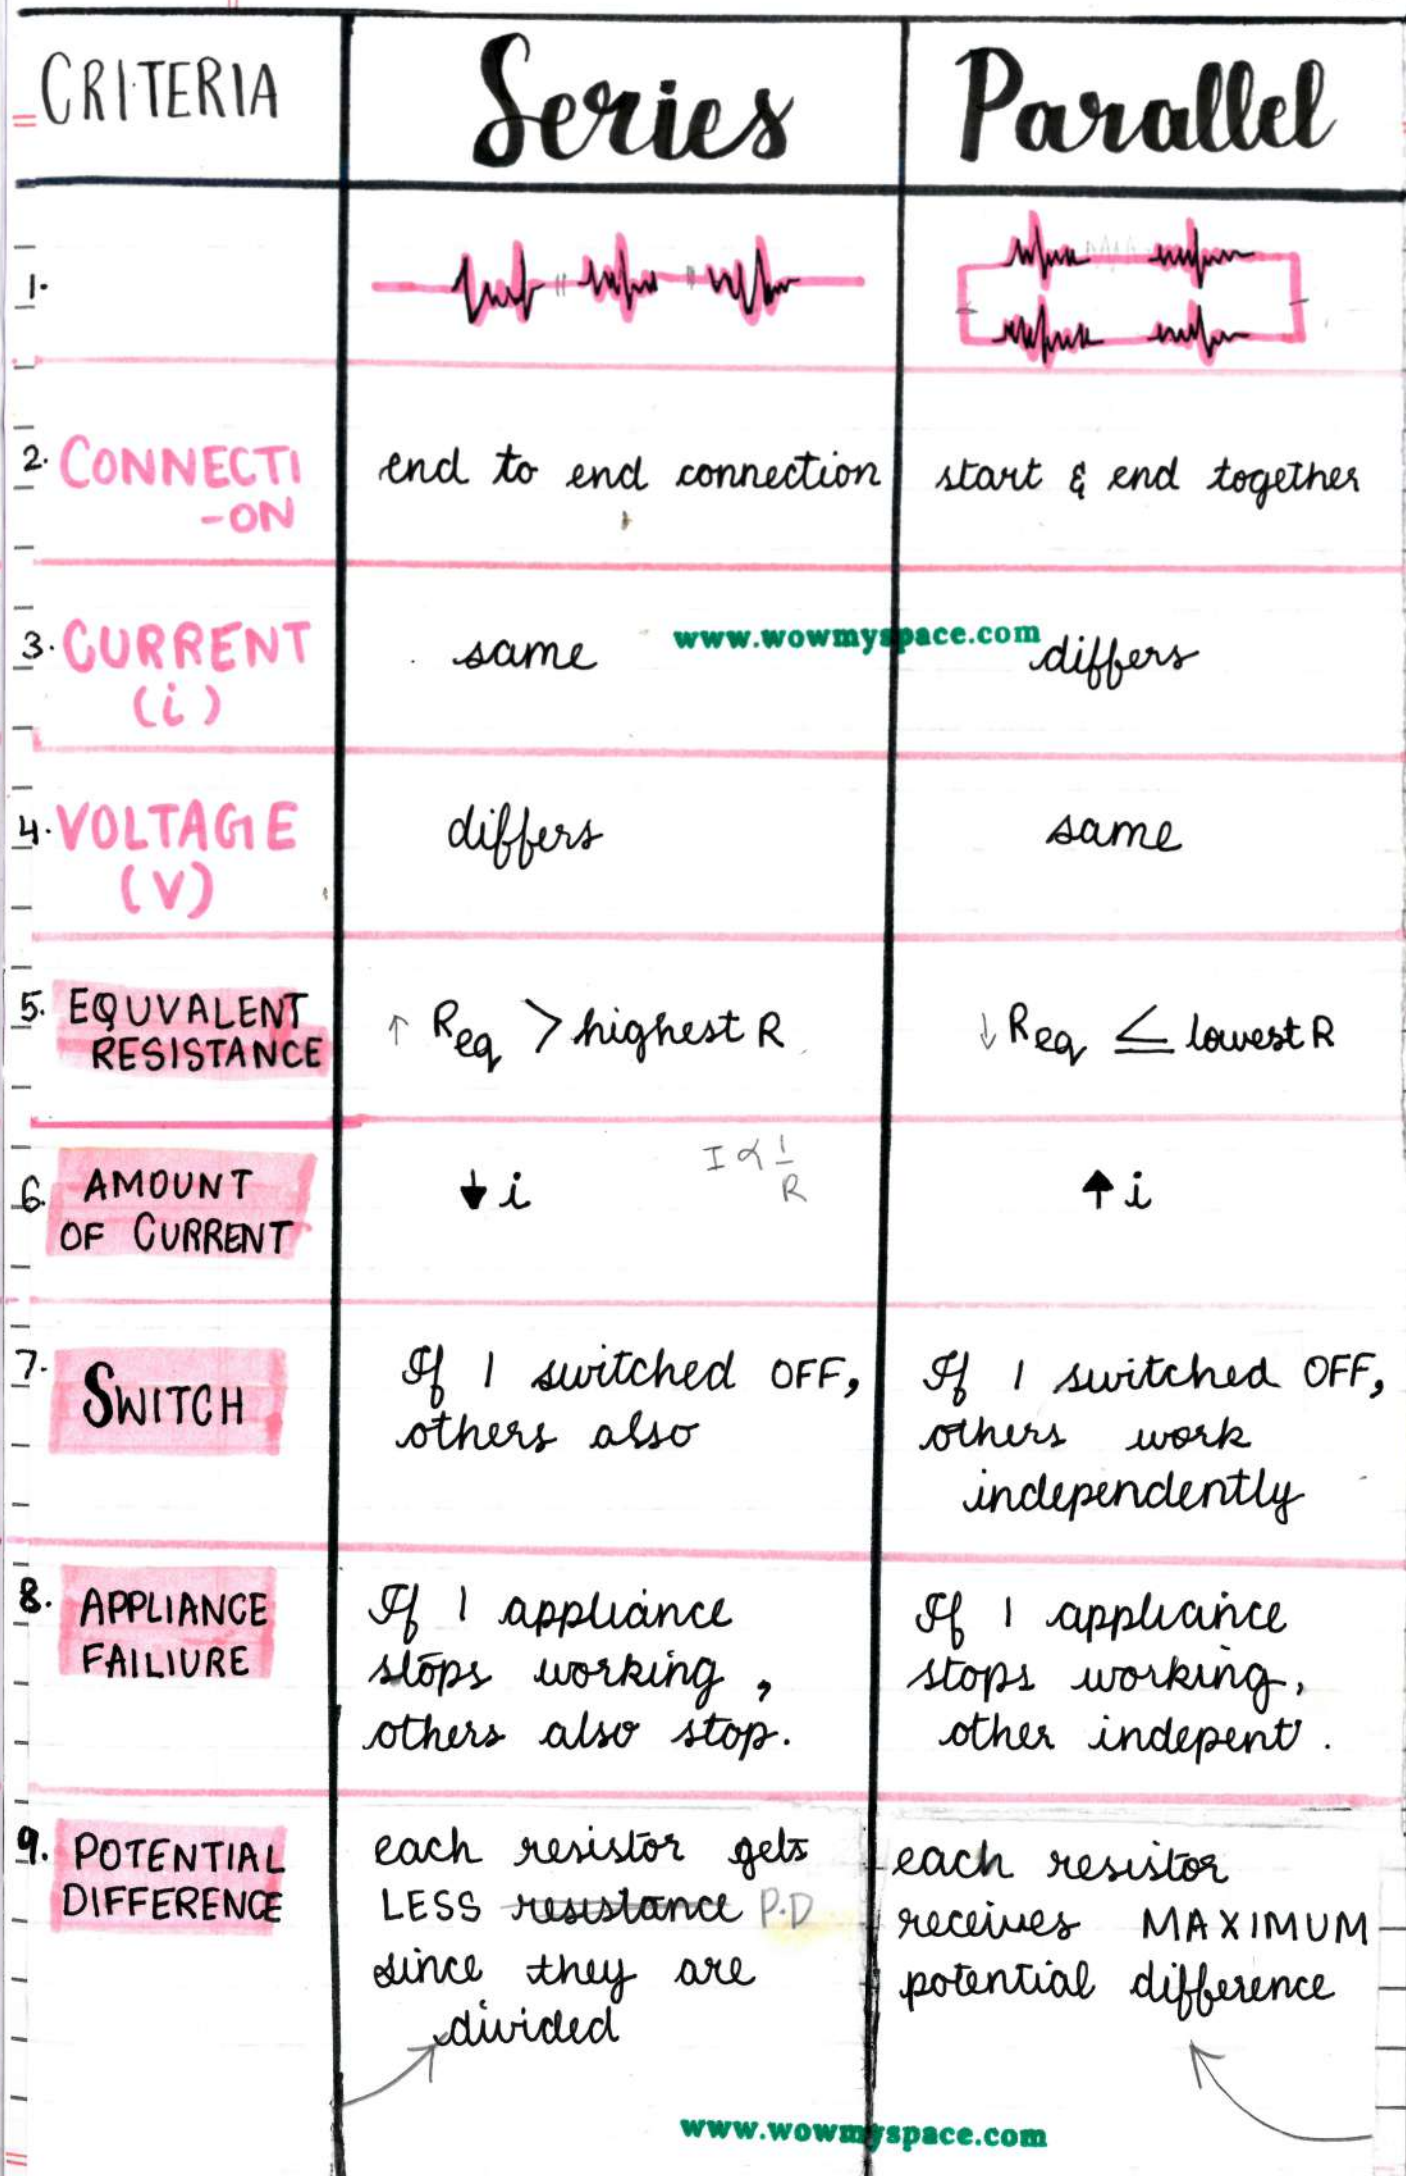 CRITERIA Series Parallel
1.
2. CONNECTI end to end connection start & end together
-ON
www.wowmyspace.com
3. CURRENT same differs
(i)
4. VOLTAGE differs same
(V)
5. EQUVALENT ↑ Req > highest R ↓ Req ≤ lowest R
RESISTANCE
I ∝ 1/R
6. AMOUNT ↓ i ↑ i
OF CURRENT
7. SWITCH
If 1 switched OFF,
others also
If 1 switched OFF,
others work
independently
8. APPLIANCE
FAILIURE
If 1 appliance
stops working,
others also stop.
If 1 appliance
stops working,
other indepent.
9. POTENTIAL
DIFFERENCE
each resistor gets
LESS resistance P.D
since they are
divided
each resistor
receives MAXIMUM
potential difference
www.wowmyspace.com